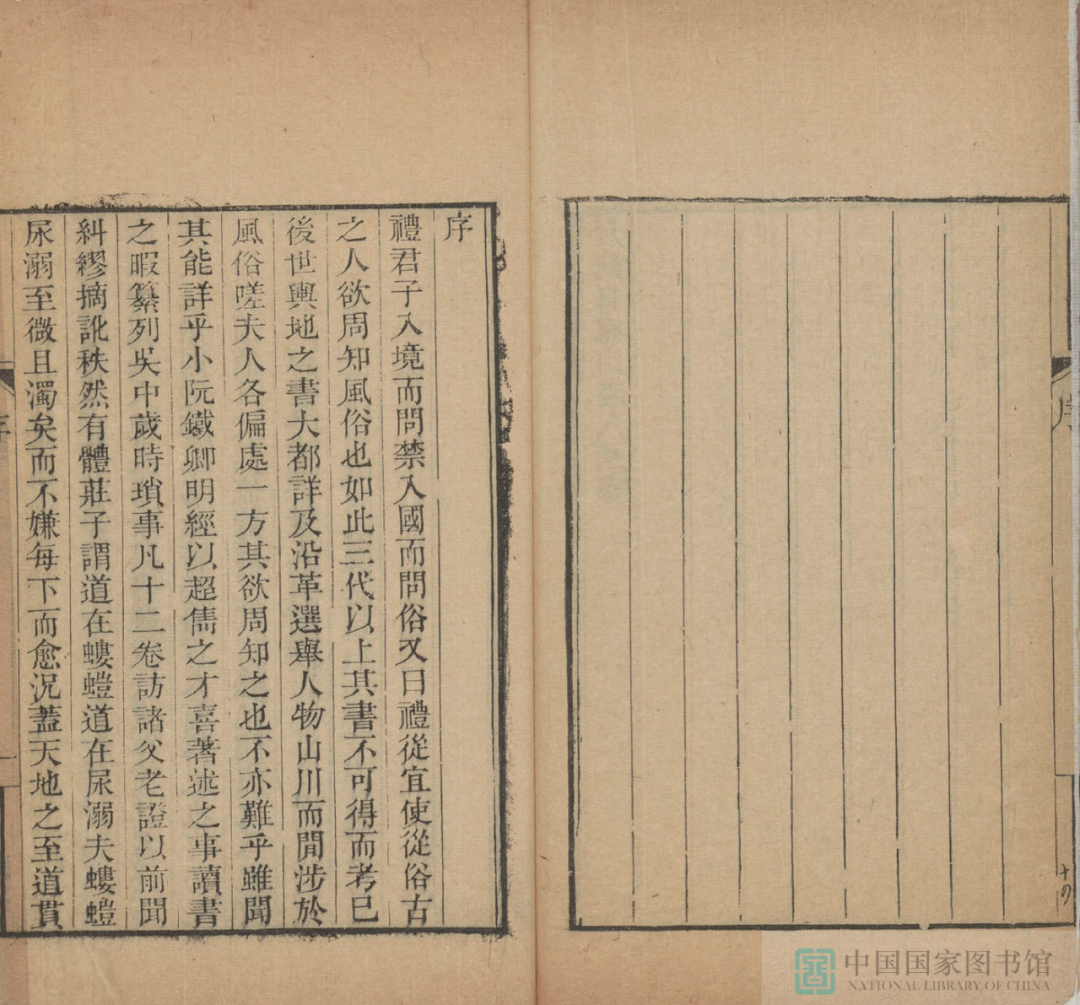 序
禮君子入境而問禁入國而問俗又曰禮從宜使從俗古
之人欲周知風俗也如此三代以上其書不可得而考已
後世輿地之書大都詳及沿革選舉人物山川而閒涉於
風俗嗟夫人各偏處一方其欲周知之也不亦難乎雖聞
其能詳乎小阮鐵卿明經以超儁之才喜著述之事讀書
之暇纂列吳中歲時瑣事凡十二卷訪諸父老證以前聞
糾繆摘訛秩然有體莊子謂道在螻螘道在尿溺夫螻螘
尿溺至微且濁矣而不嫌每下而愈況蓋天地之至道貫
序
一
序
中国国家图书馆
NATIONAL LIBRARY OF CHINA